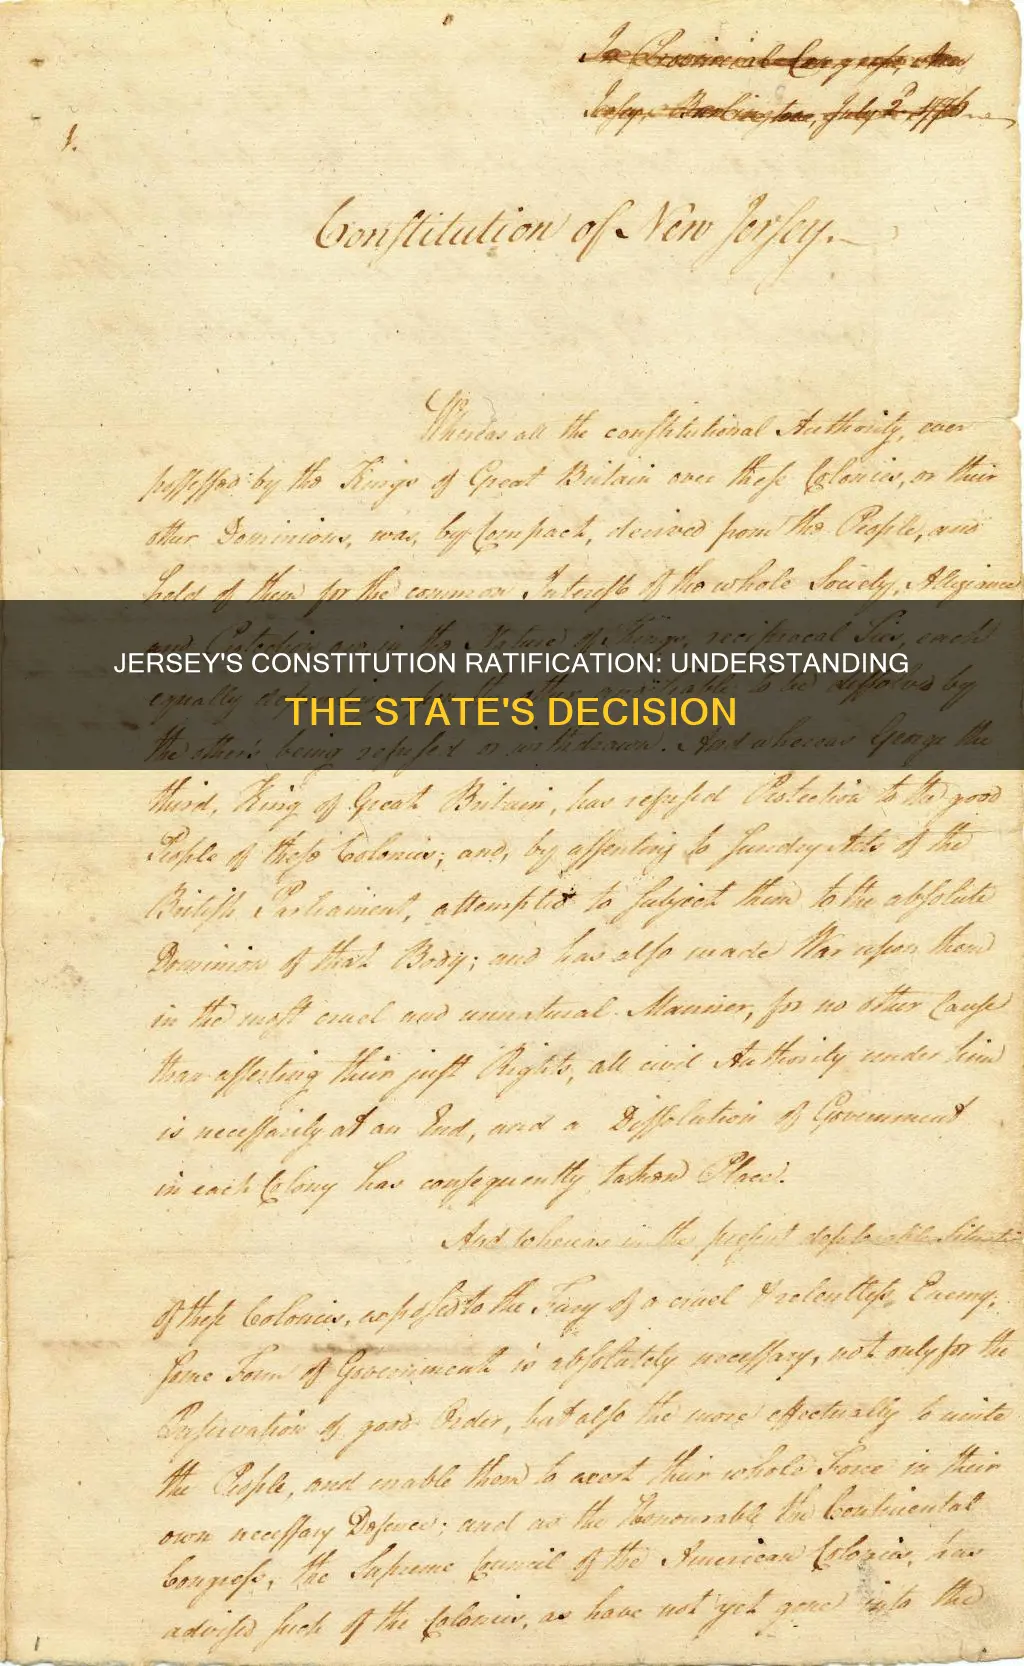 In Provincial Congress, New
Jersey, Burlington, July 2d 1776
1.
Constitution of New Jersey.
Whereas all the constitutional Authority, ever
possessed by the Kings of Great Britain over these Colonies, or their
other Dominions, was, by Compact, derived from the People, and
held of them for the common Interest of the whole Society, Allegiance
and Protection are in the Nature of Things, reciprocal Ties, each
JERSEY'S CONSTITUTION RATIFICATION: UNDERSTANDING
equally depending upon the other, and liable to be dissolved by
THE STATE'S DECISION
the other's being refused or withdrawn. And whereas George the
third, King of Great Britain, has refused Protection to the good
People of these Colonies; and, by assenting to sundry Acts of the
British Parliament, attempted to subject them to the absolute
Dominion of that Body; and has also made War upon them
in the most cruel and unnatural Manner, for no other Cause
than asserting their just Rights, all civil Authority under him
is necessarily at an End, and a Dissolution of Government
in each Colony has consequently taken Place.
And whereas in the present deplorable Situation
of these Colonies, exposed to the Fury of a cruel & relentless Enemy,
some Form of Government is absolutely necessary, not only for the
Preservation of good Order, but also the more effectually to unite
the People, and enable them to exert their whole Force in their
own necessary Defence; and as the Honourable the Continental
Congress, the Supreme Council of the American Colonies, has
advised such of the Colonies, as have not yet gone into the